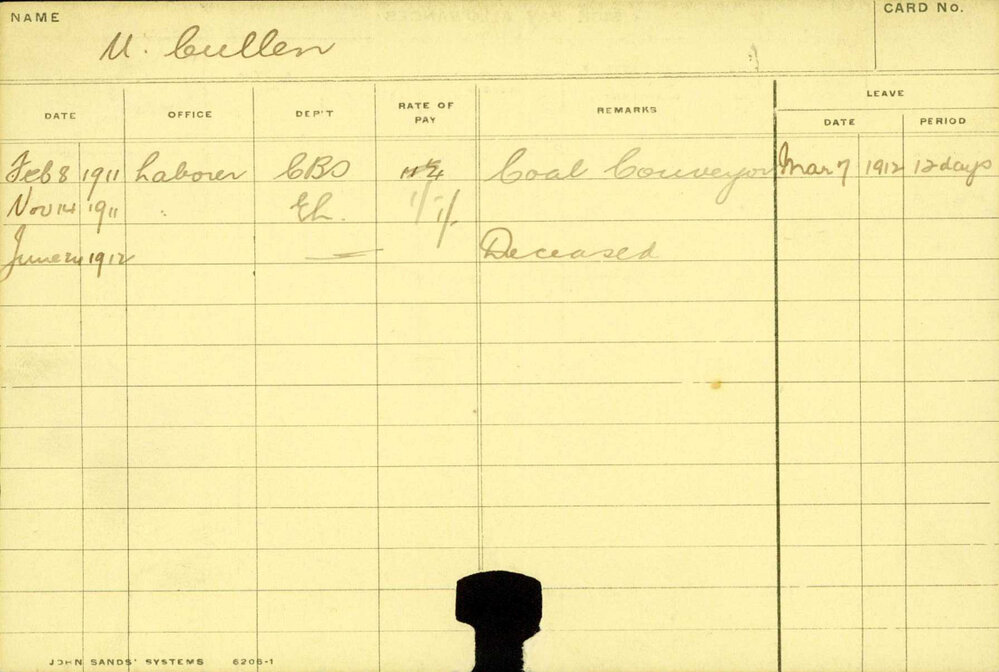 NAME
CARD No.
U. Cullen
DATE OFFICE DEP'T RATE OF PAY REMARKS LEAVE
DATE PERIOD
Feb 8 1911 Laborer CBS Coal Conveyor Mar 7 1912 12 days
Nov 14 1911 EL. 1/- 1/-
June 24 1912 Deceased
JOHN SANDS' SYSTEMS 6206-1